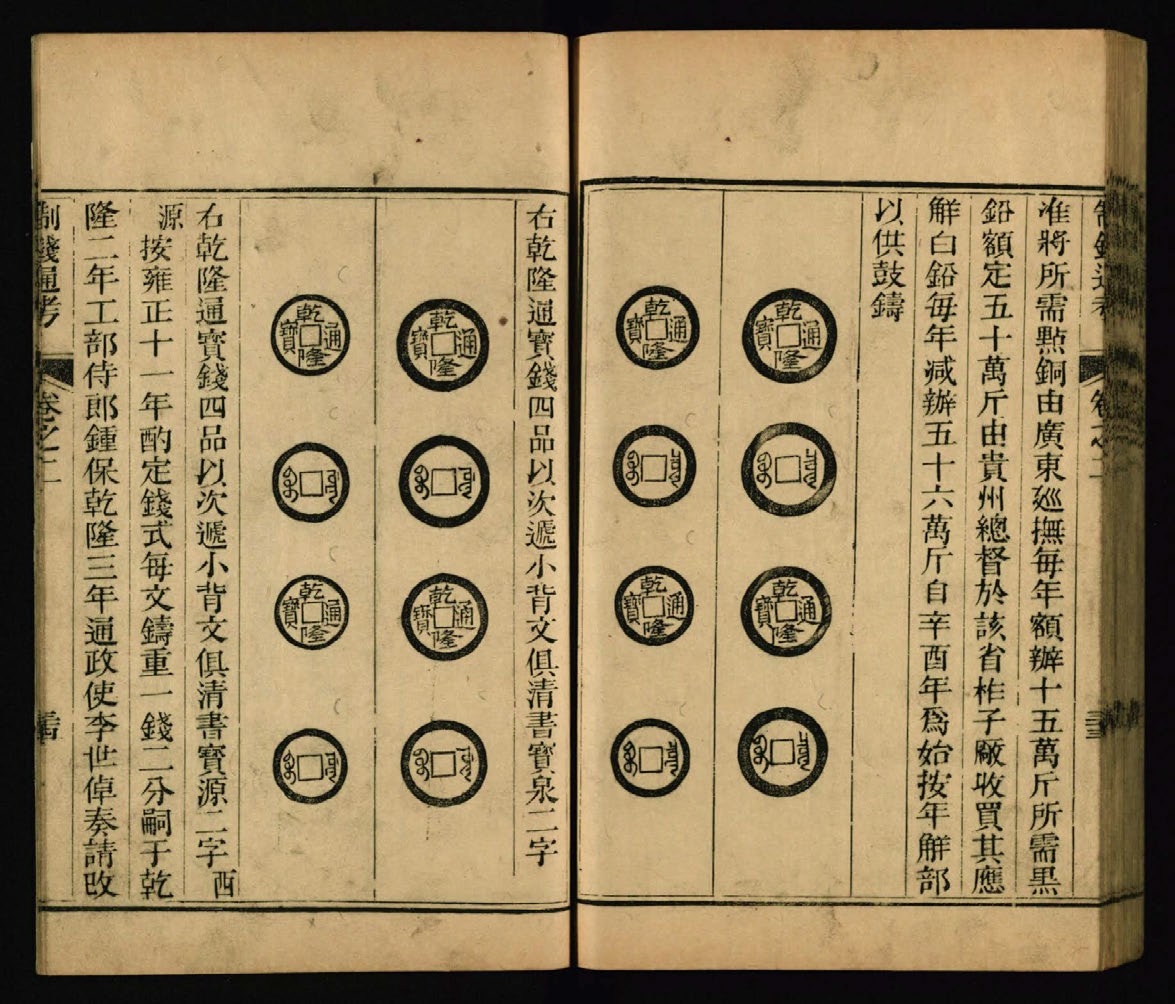 制錢通考 卷之二
准將所需㸃銅由廣東廵撫每年額辦十五萬斤所需黒
鉛額定五十萬斤由貴州總督於該省柞子厰收買其應
解白鉛每年减辦五十六萬斤自辛酉年爲始按年解部
以供鼓鑄
乾隆通寶
乾隆通寶
乾隆通寶
乾隆通寶
右乾隆通寶錢四品以次遞小背文俱清書寶泉二字
乾隆通寶
乾隆通寶
乾隆通寶
乾隆通寶
右乾隆通寶錢四品以次遞小背文俱清書寶源二字西
源按雍正十一年酌定錢式每文鑄重一錢二分嗣于乾
隆二年工部侍郎鍾保乾隆三年通政使李世倬奏請改
制錢通考 卷之二